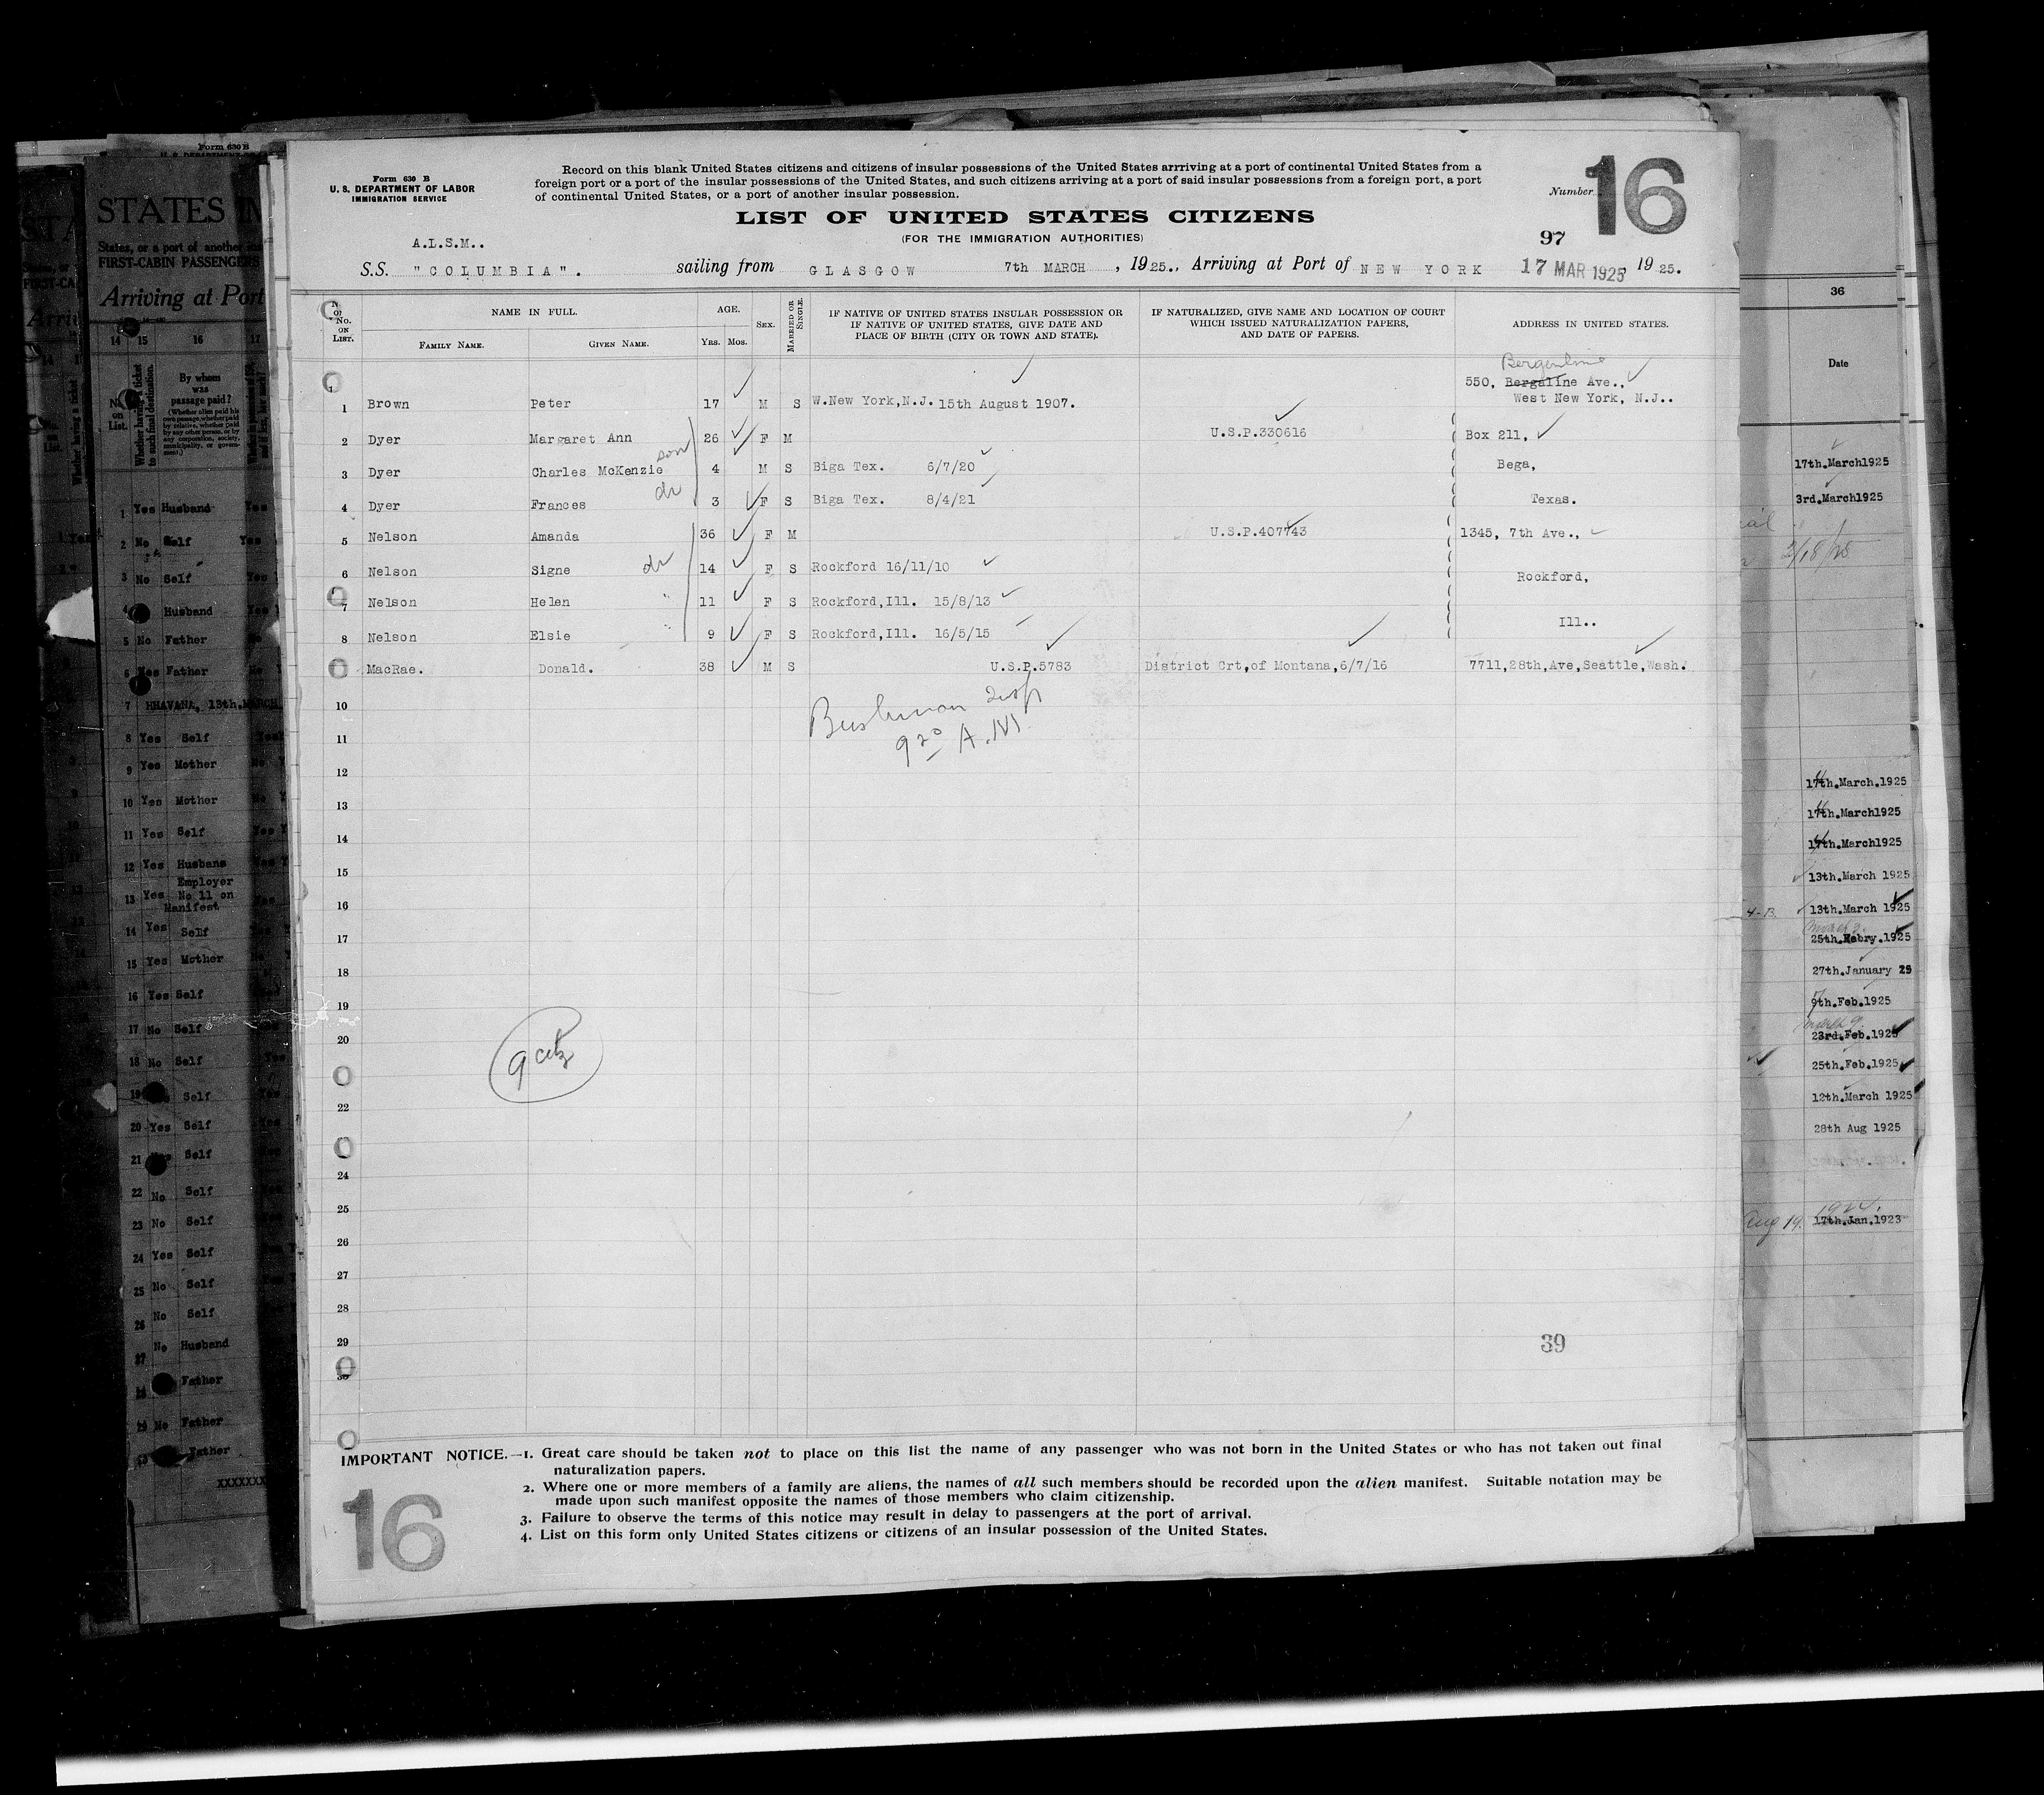 Form 630 B
U. S. DEPARTMENT OF LABOR
IMMIGRATION SERVICE
Record on this blank United States citizens and citizens of insular possessions of the United States arrriving at a port of continental United States from a
foreign port or a port of the insular possessions of the United States, and such citizens arriving at a port of said insular possessions from a foreign port, a port
of continental United States, or a port of another insular possession.
Number 16
LIST OF UNITED STATES CITIZENS
(FOR THE IMMIGRATION AUTHORITIES)
97
A.L.S.M..
S.S. "COLUMBIA". sailing from GLASGOW 7th MARCH, 1925., Arriving at Port of NEW YORK 17 MAR 1925, 1925.
No. ON LIST. NAME IN FULL. FAMILY NAME. GIVEN NAME. AGE. Yrs. Mos. SEX. MARRIED OR SINGLE.
IF NATIVE OF UNITED STATES INSULAR POSSESSION OR
IF NATIVE OF UNITED STATES, GIVE DATE AND
PLACE OF BIRTH (CITY OR TOWN AND STATE).
IF NATURALIZED, GIVE NAME AND LOCATION OF COURT
WHICH ISSUED NATURALIZATION PAPERS,
AND DATE OF PAPERS.
ADDRESS IN UNITED STATES.
Bergenline
550, Bergaline Ave.,
1 Brown Peter 17 M S W.New York,N.J. 15th August 1907. West New York, N.J..
2 Dyer Margaret Ann 26 F M U.S.P.330616 Box 211,
son
3 Dyer Charles McKenzie 4 M S Biga Tex. 6/7/20 Bega,
4 Dyer Frances dr 3 F S Biga Tex. 8/4/21 Texas.
5 Nelson Amanda 36 F M U.S.P.407743 1345, 7th Ave.,
6 Nelson Signe dr 14 F S Rockford 16/11/10 Rockford,
7 Nelson Helen " 11 F S Rockford,Ill. 15/8/13
8 Nelson Elsie " 9 F S Rockford,Ill. 16/5/15 Ill..
MacRae. Donald. 38 M S U.S.P.5783 District Crt,of Montana,6/7/16 7711,28th,Ave,Seattle,Wash.
10
Bushman Insp
11
9 20 A.M.
12
13
14
15
16
17
18
19
20
9 citz
22
24
25
26
27
28
29
39
30
IMPORTANT NOTICE.—1. Great care should be taken not to place on this list the name of any passenger who was not born in the United States or who has not taken out final
naturalization papers.
2. Where one or more members of a family are aliens, the names of all such members should be recorded upon the alien manifest. Suitable notation may be
made upon such manifest opposite the names of those members who claim citizenship.
3. Failure to observe the terms of this notice may result in delay to passengers at the port of arrival.
4. List on this form only United States citizens or citizens of an insular possession of the United States.
16
Form 630 B
STATES IM
States, or a port of another
FIRST-CABIN PASSENGERS
Arriving at Port
14 15 16 17
No. on List.
Whether having a ticket to such final destination.
By whom was passage paid?
1 Yes Husband Yes
2 No Self Yes
3 No Self
4 Husband
5 No Father
6 Yes Father
7 HHAVANA, 13th.MARCH
8 Yes Self
9 Yes Mother
10 Yes Mother
11 Yes Self
12 Yes Husbans
13 Yes Employer
No 11 on
Manifest
14 Yes Self
15 Yes Mother
16 Yes Self
17 No Self
18 No Self
19 Self
20 Yes Self
21 Self
22 No Self
23 No Self
24 Yes Self
25 No Self
26 No Self
27 No Husband
Father
29 No Father
Father
XXXXXXX
36
Date
17th.March1925
3rd.March1925
2/18/25
17th.March.1925
17th.March1925
17th.March1925
13th.March 1925
13th.March 1925
25th.Febry.1925
27th.January 25
9th.Feb.1925
23rd.Feb.1925
25th.Feb.1925
12th.March 1925
28th Aug 1925
Aug 19. 1924.
17th.Jan.1923